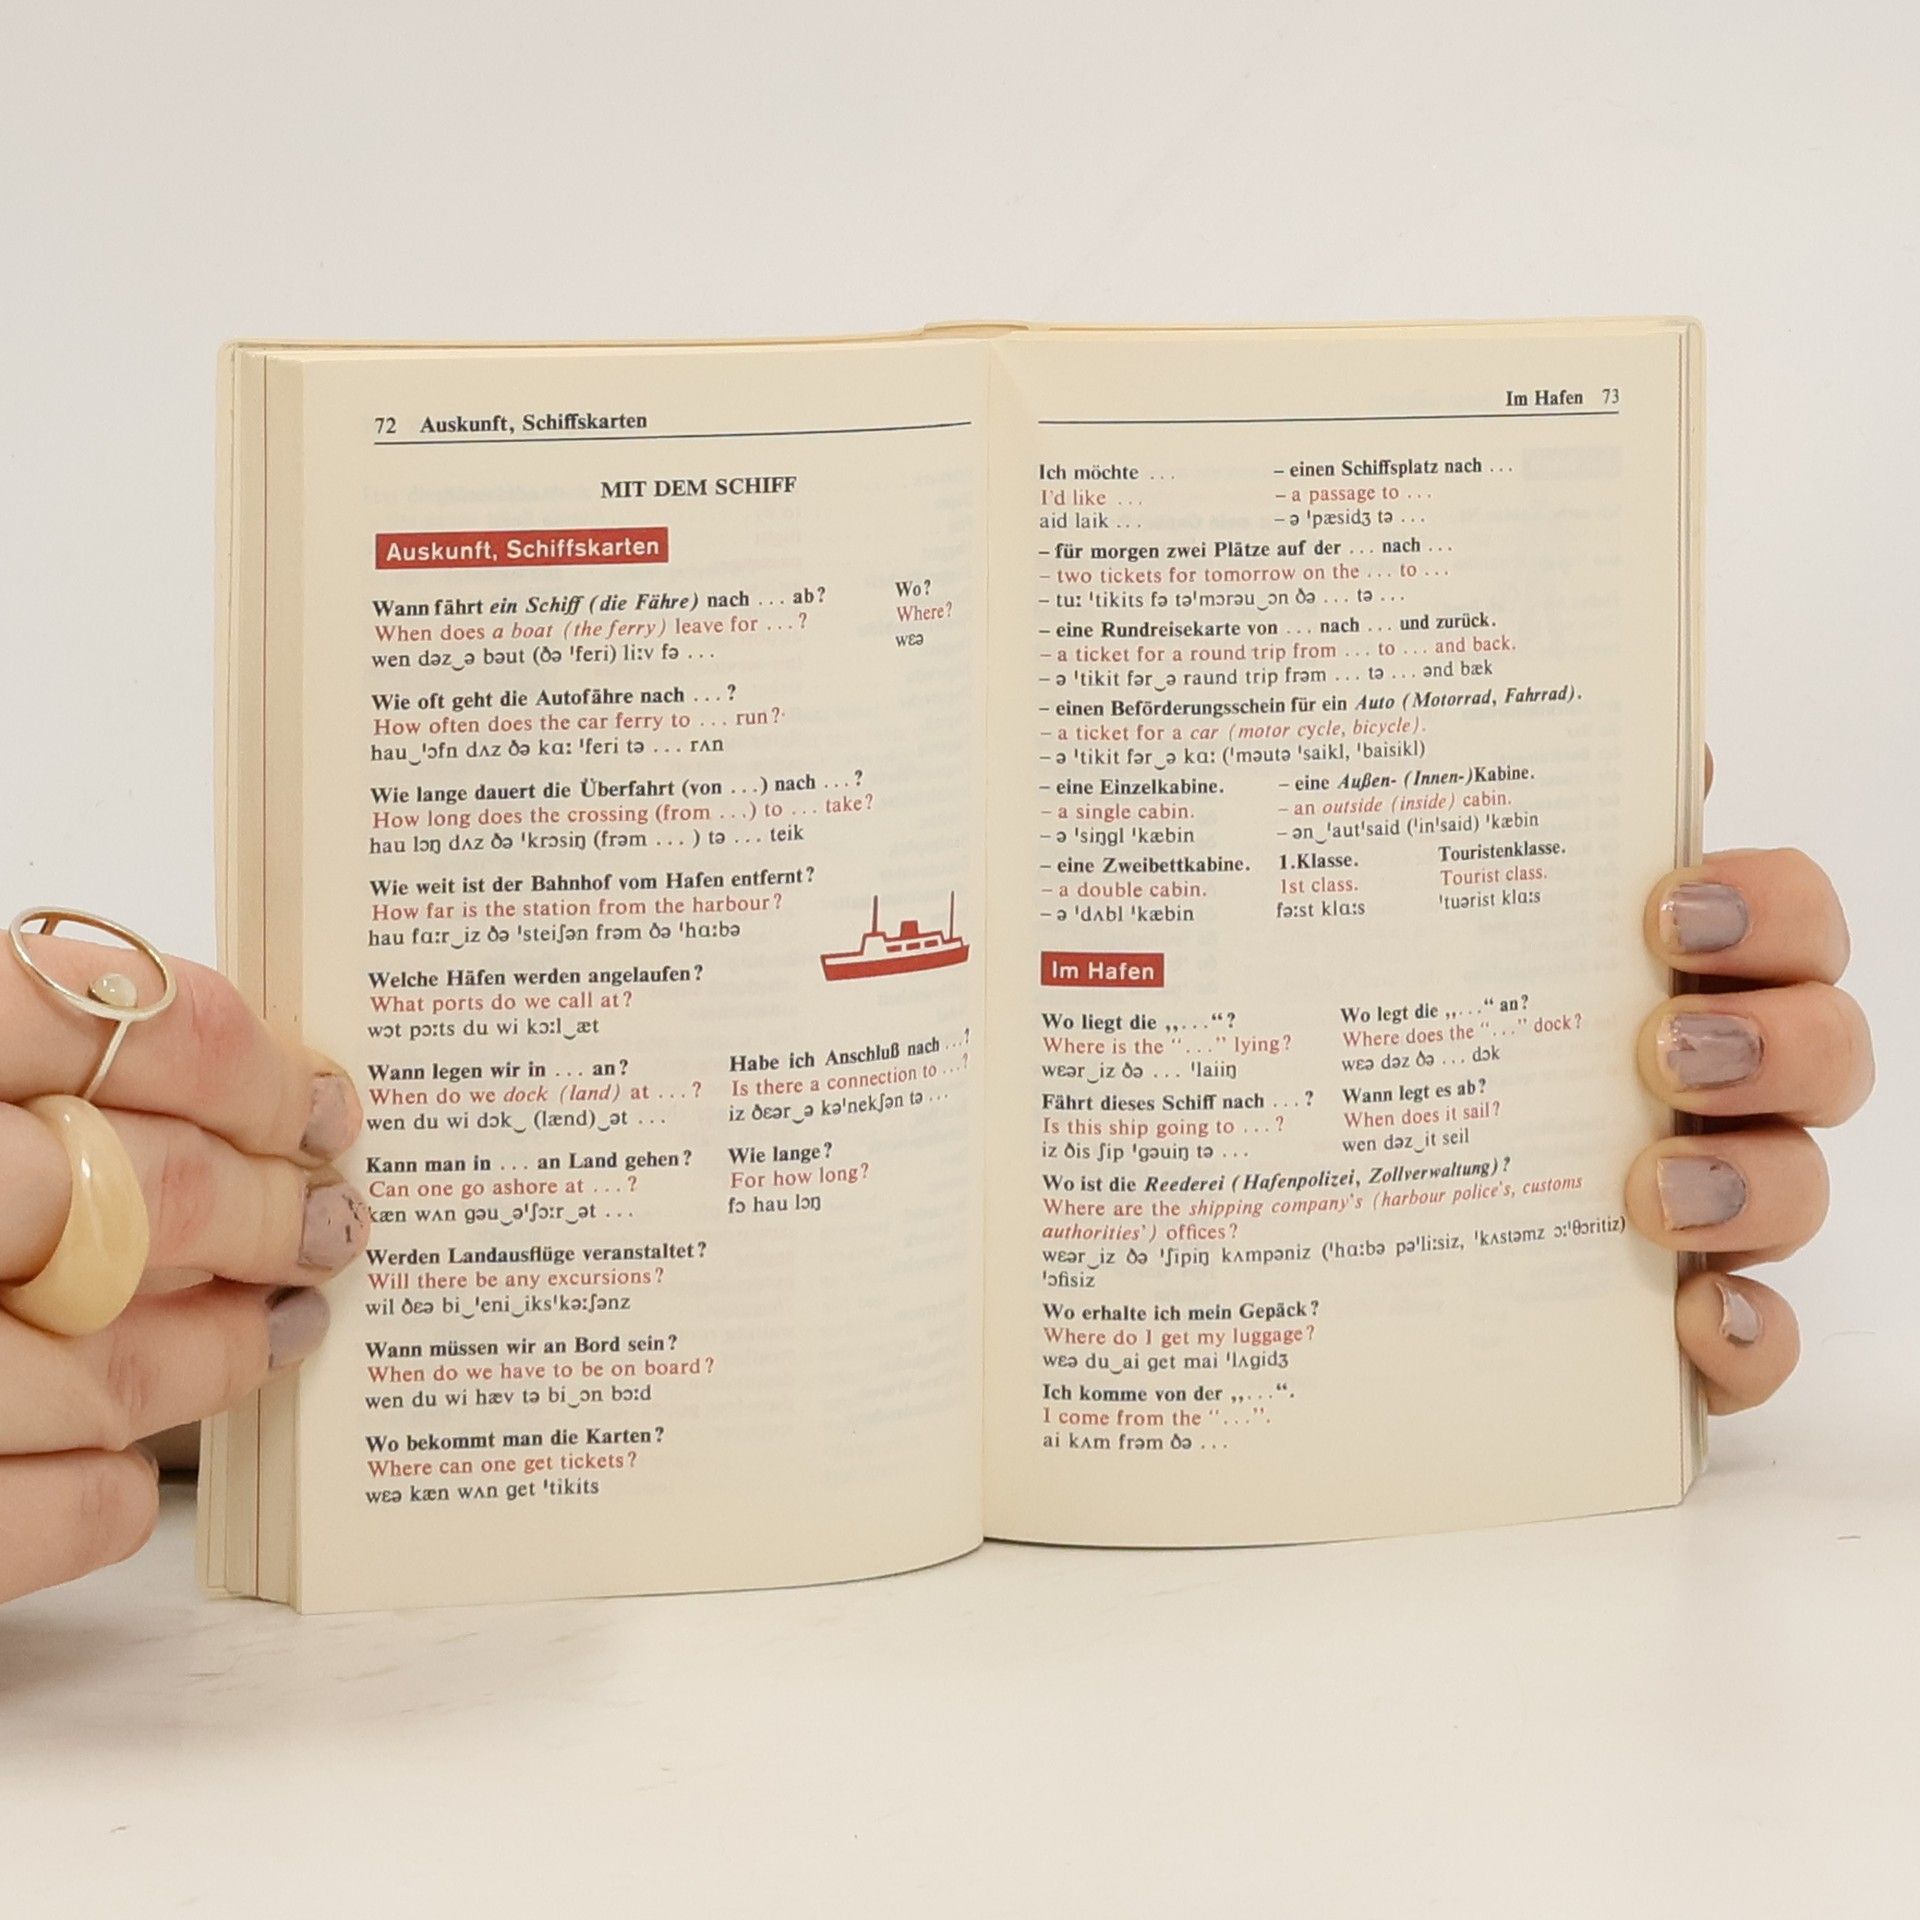 72 Auskunft, Schiffskarten
MIT DEM SCHIFF
Auskunft, Schiffskarten
Wann fährt ein Schiff (die Fähre) nach ... ab?
When does a boat (the ferry) leave for ...?
wen dəz‿ə bəut (ðə ˈferi) liːv fə ...
Wo?
Where?
wɛə
Wie oft geht die Autofähre nach ...?
How often does the car ferry to ... run?
hau‿ˈɔfn dʌz ðə kɑː ˈferi tə ... rʌn
Wie lange dauert die Überfahrt (von ...) nach ...?
How long does the crossing (from ...) to ... take?
hau lɔŋ dʌz ðə ˈkrɔsiŋ (frəm ... ) tə ... teik
Wie weit ist der Bahnhof vom Hafen entfernt?
How far is the station from the harbour?
hau fɑːr‿iz ðə ˈsteiʃən frəm ðə ˈhɑːbə
Welche Häfen werden angelaufen?
What ports do we call at?
wɔt pɔːts du wi kɔːl‿æt
Wann legen wir in ... an?
When do we dock (land) at ...?
wen du wi dɔk‿ (lænd)‿ət ...
Habe ich Anschluß nach ...?
Is there a connection to ...?
iz ðɛər‿ə kəˈnekʃən tə ...
Kann man in ... an Land gehen?
Can one go ashore at ...?
kæn wʌn gəu‿əˈʃɔːr‿ət ...
Wie lange?
For how long?
fɔ hau lɔŋ
Werden Landausflüge veranstaltet?
Will there be any excursions?
wil ðɛə bi‿ˈeni‿iksˈkəːʃənz
Wann müssen wir an Bord sein?
When do we have to be on board?
wen du wi hæv tə bi‿ɔn bɔːd
Wo bekommt man die Karten?
Where can one get tickets?
wɛə kæn wʌn get ˈtikits
Im Hafen 73
Ich möchte ...
I'd like ...
aid laik ...
– einen Schiffsplatz nach ...
– a passage to ...
– ə ˈpæsidʒ tə ...
– für morgen zwei Plätze auf der ... nach ...
– two tickets for tomorrow on the ... to ...
– tuː ˈtikits fə təˈmɔrəu‿ɔn ðə ... tə ...
– eine Rundreisekarte von ... nach ... und zurück.
– a ticket for a round trip from ... to ... and back.
– ə ˈtikit fər‿ə raund trip frəm ... tə ... ənd bæk
– einen Beförderungsschein für ein Auto (Motorrad, Fahrrad).
– a ticket for a car (motor cycle, bicycle).
– ə ˈtikit fər‿ə kɑː (ˈməutə ˈsaikl, ˈbaisikl)
– eine Einzelkabine.
– a single cabin.
– ə ˈsiŋgl ˈkæbin
– eine Außen- (Innen-)Kabine.
– an outside (inside) cabin.
– ən‿ˈautˈsaid (ˈinˈsaid) ˈkæbin
– eine Zweibettkabine.
– a double cabin.
– ə ˈdʌbl ˈkæbin
1.Klasse.
1st class.
fəːst klɑːs
Touristenklasse.
Tourist class.
ˈtuərist klɑːs
Im Hafen
Wo liegt die „...“?
Where is the “...” lying?
wɛər‿iz ðə ... ˈlaiiŋ
Wo legt die „...“ an?
Where does the “...” dock?
wɛə dəz ðə ... dɔk
Fährt dieses Schiff nach ...?
Is this ship going to ...?
iz ðis ʃip ˈgəuiŋ tə ...
Wann legt es ab?
When does it sail?
wen dəz‿it seil
Wo ist die Reederei (Hafenpolizei, Zollverwaltung)?
Where are the shipping company's (harbour police's, customs
authorities') offices?
wɛər‿iz ðə ˈʃipiŋ kʌmpəniz (ˈhɑːbə pəˈliːsiz, ˈkʌstəmz ɔːˈθɔritiz)
ˈɔfisiz
Wo erhalte ich mein Gepäck?
Where do I get my luggage?
wɛə du‿ai get mai ˈlʌgidʒ
Ich komme von der „...“.
I come from the “...”.
ai kʌm frəm ðə ...